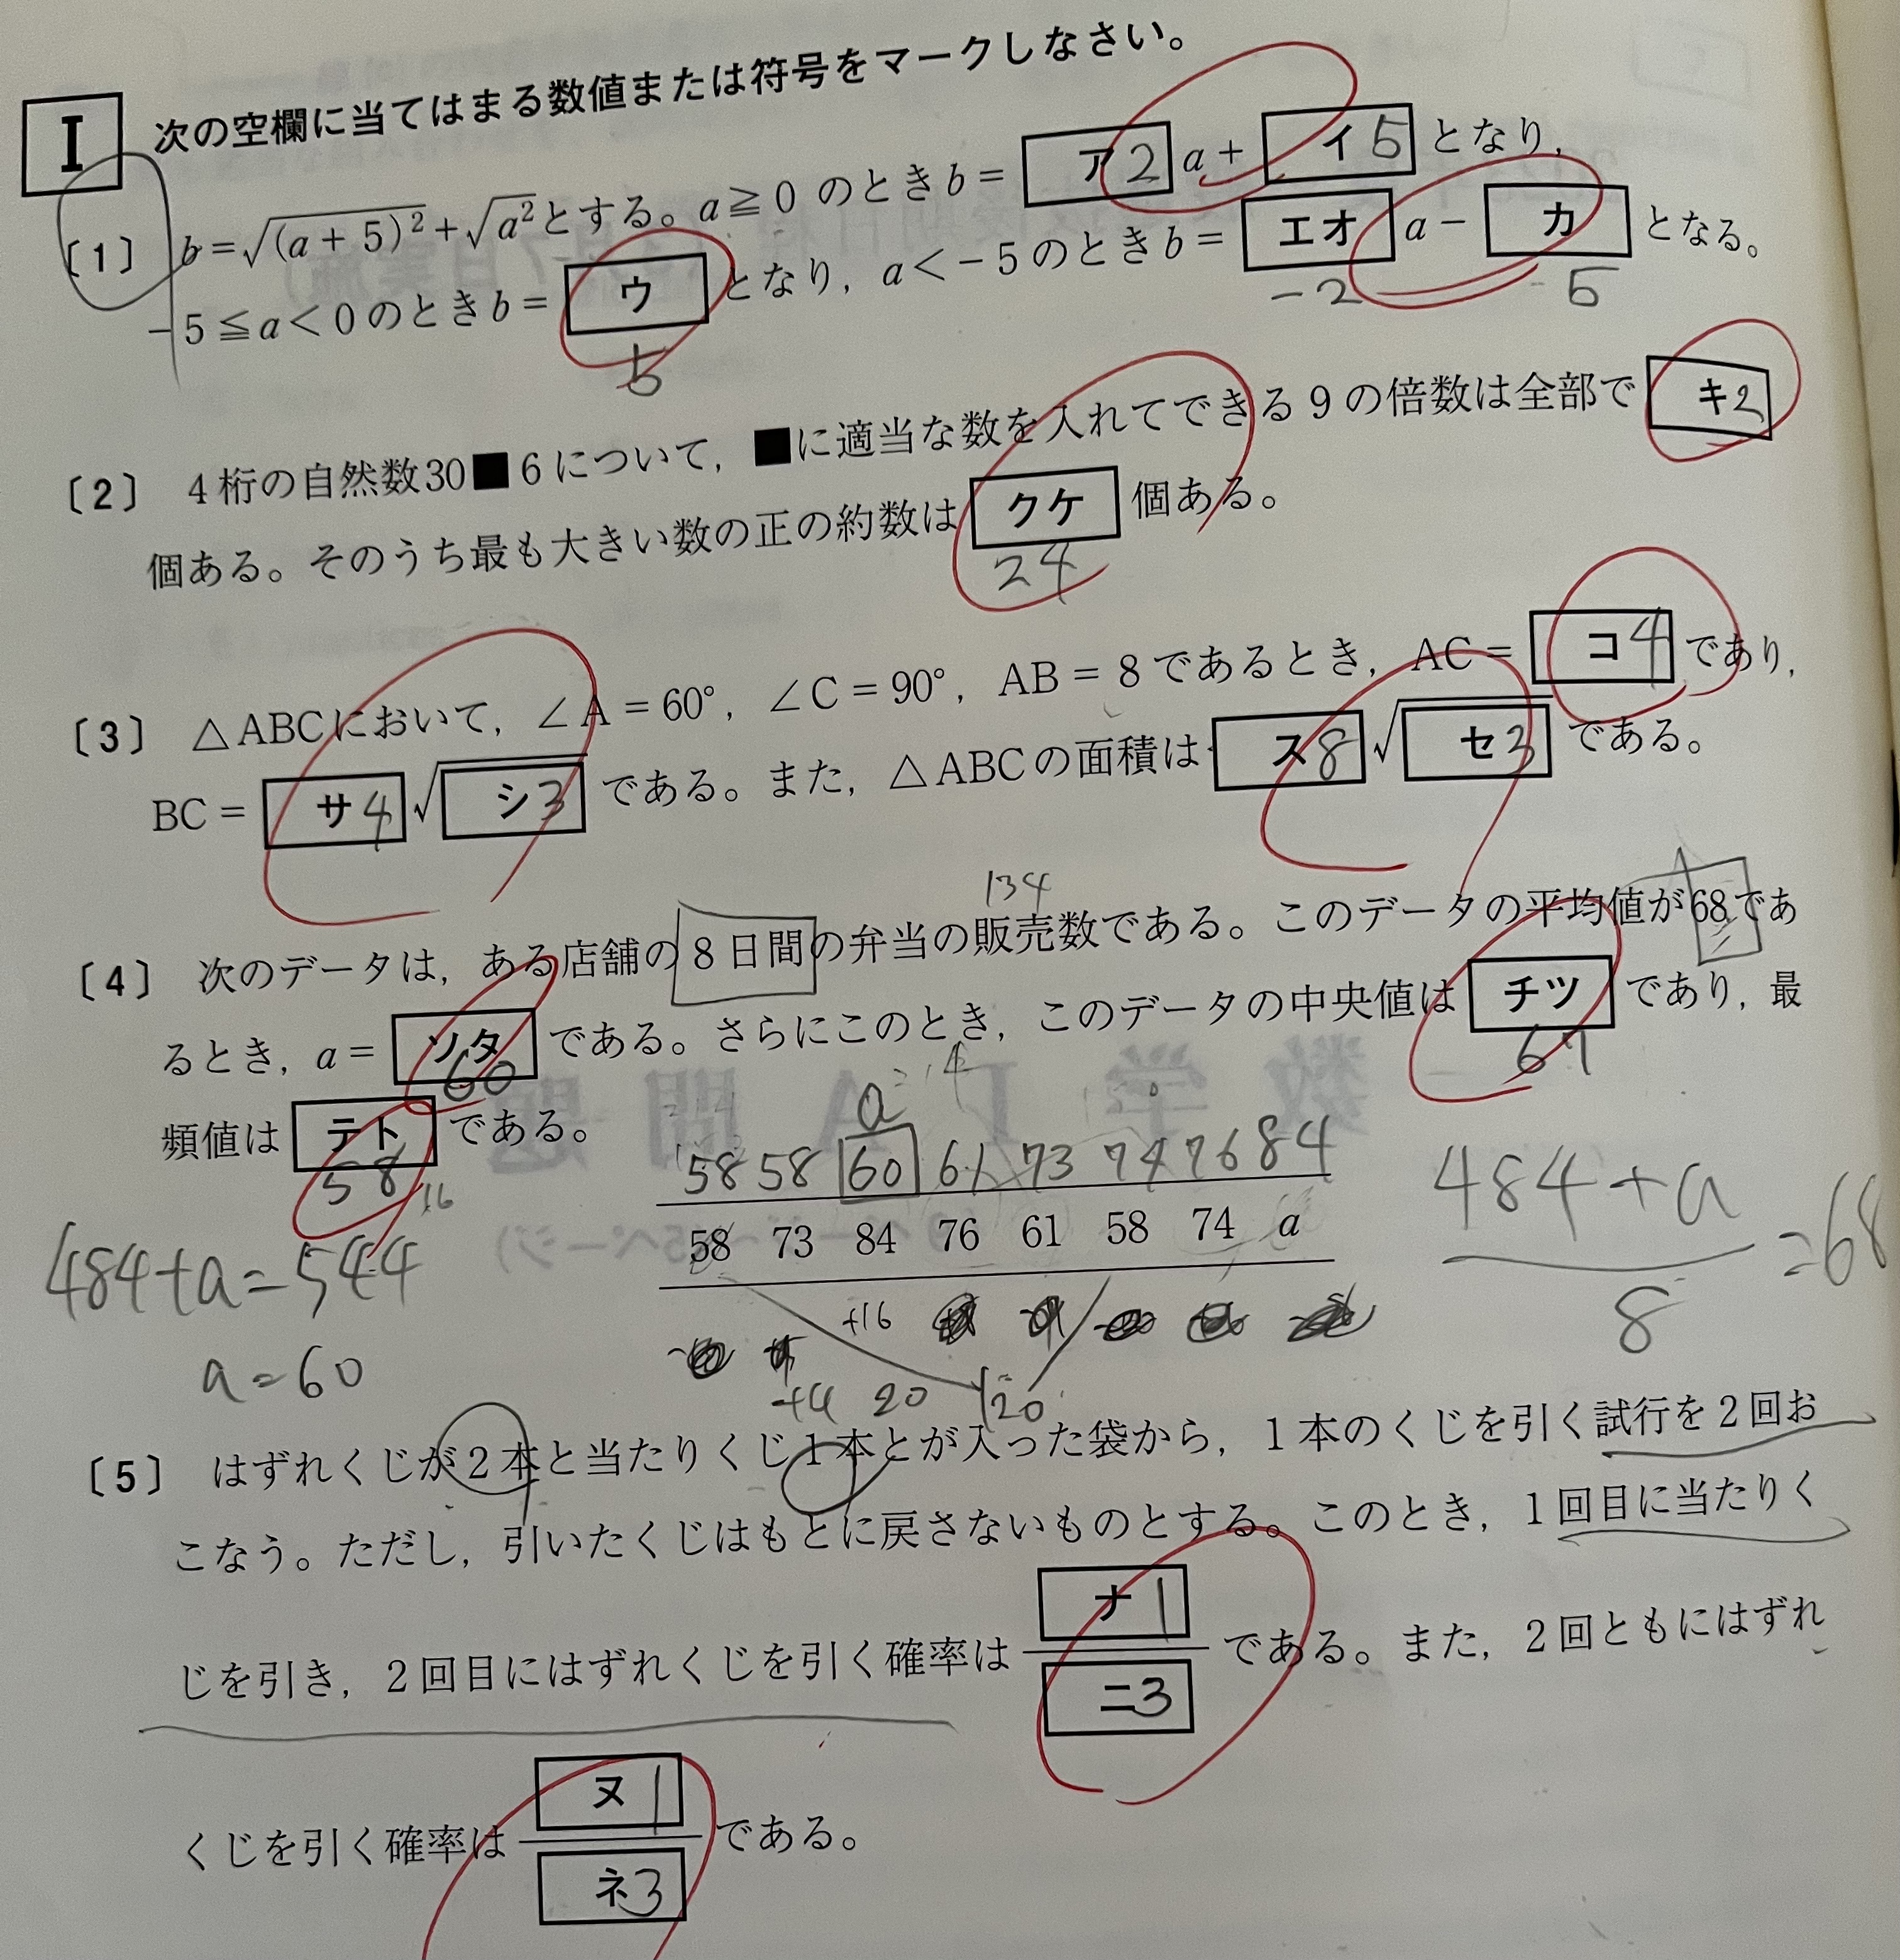 I 次の空欄に当てはまる数値または符号をマークしなさい。
〔1〕 b=√(a+5)²+√a²とする。a≧0 のときb= ア2 a+ イ5 となり,
-5≦a<0のときb= ウ となり, a<-5のときb= エオ a- カ となる。
5 -2 5
〔2〕 4桁の自然数30■6について, ■に適当な数を入れてできる9の倍数は全部で キ2
個ある。そのうち最も大きい数の正の約数は クケ 個ある。
24
〔3〕 △ABCにおいて, ∠A=60°, ∠C=90°, AB=8であるとき, AC= コ4 であり,
BC= サ4 √シ3 である。また, △ABCの面積は ス8 √セ3 である。
134
〔4〕 次のデータは, ある店舗の8日間の弁当の販売数である。このデータの平均値が68であ
るとき, a= ソタ である。さらにこのとき, このデータの中央値は チツ であり, 最
60 67
頻値は テト である。
58
a
58 58 60 61 73 74 76 84
58 73 84 76 61 58 74 a
484+a=544
a=60
484+a
8
=68
+16
+4 20 120
〔5〕 はずれくじが2本と当たりくじ1本とが入った袋から, 1本のくじを引く試行を2回お
こなう。ただし, 引いたくじはもとに戻さないものとする。このとき, 1回目に当たりく
じを引き, 2回目にはずれくじを引く確率は ナ1 / ニ3 である。また, 2回ともにはずれ
くじを引く確率は ヌ1 / ネ3 である。